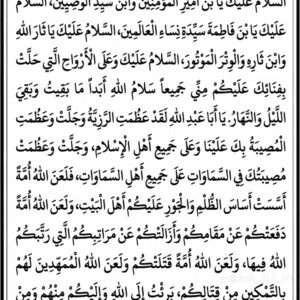 السَّلَامُ عَلَيْكَ يَا بْنَ أَمِيرِ الْمُؤْمِنِينَ وَابْنَ سَيِّدِ الْوَصِيِّينَ، السَّلَامُ
عَلَيْكَ يَا بْنَ فَاطِمَةَ سَيِّدَةِ نِسَاءِ الْعَالَمِينَ، السَّلَامُ عَلَيْكَ يَا ثَارَ اللهِ
وَابْنَ ثَارِهِ وَالْوِتْرَ الْمَوْتُورَ، السَّلَامُ عَلَيْكَ وَعَلَى الْأَرْوَاحِ الَّتِي حَلَّتْ
بِفِنَائِكَ عَلَيْكُمْ مِنِّي جَمِيعاً سَلَامُ اللهِ أَبَداً مَا بَقِيتُ وَبَقِيَ
اللَّيْلُ وَالنَّهَارُ. يَا أَبَا عَبْدِ اللهِ لَقَدْ عَظُمَتِ الرَّزِيَّةُ وَجَلَّتْ وَعَظُمَتْ
الْمُصِيبَةُ بِكَ عَلَيْنَا وَعَلَى جَمِيعِ أَهْلِ الْإِسْلَامِ، وَجَلَّتْ وَعَظُمَتْ
مُصِيبَتُكَ فِي السَّمَاوَاتِ عَلَى جَمِيعِ أَهْلِ السَّمَاوَاتِ، فَلَعَنَ اللهُ أُمَّةً
أَسَّسَتْ أَسَاسَ الظُّلْمِ وَالْجَوْرِ عَلَيْكُمْ أَهْلَ الْبَيْتِ، وَلَعَنَ اللهُ أُمَّةً
دَفَعَتْكُمْ عَنْ مَقَامِكُمْ وَأَزَالَتْكُمْ عَنْ مَرَاتِبِكُمُ الَّتِي رَتَّبَكُمُ
اللهُ فِيهَا، وَلَعَنَ اللهُ أُمَّةً قَتَلَتْكُمْ وَلَعَنَ اللهُ الْمُمَهِّدِينَ لَهُمْ
بِالتَّمْكِينِ مِنْ قِتَالِكُمْ، بَرِئْتُ إِلَى اللهِ وَإِلَيْكُمْ مِنْهُمْ وَمِنْ